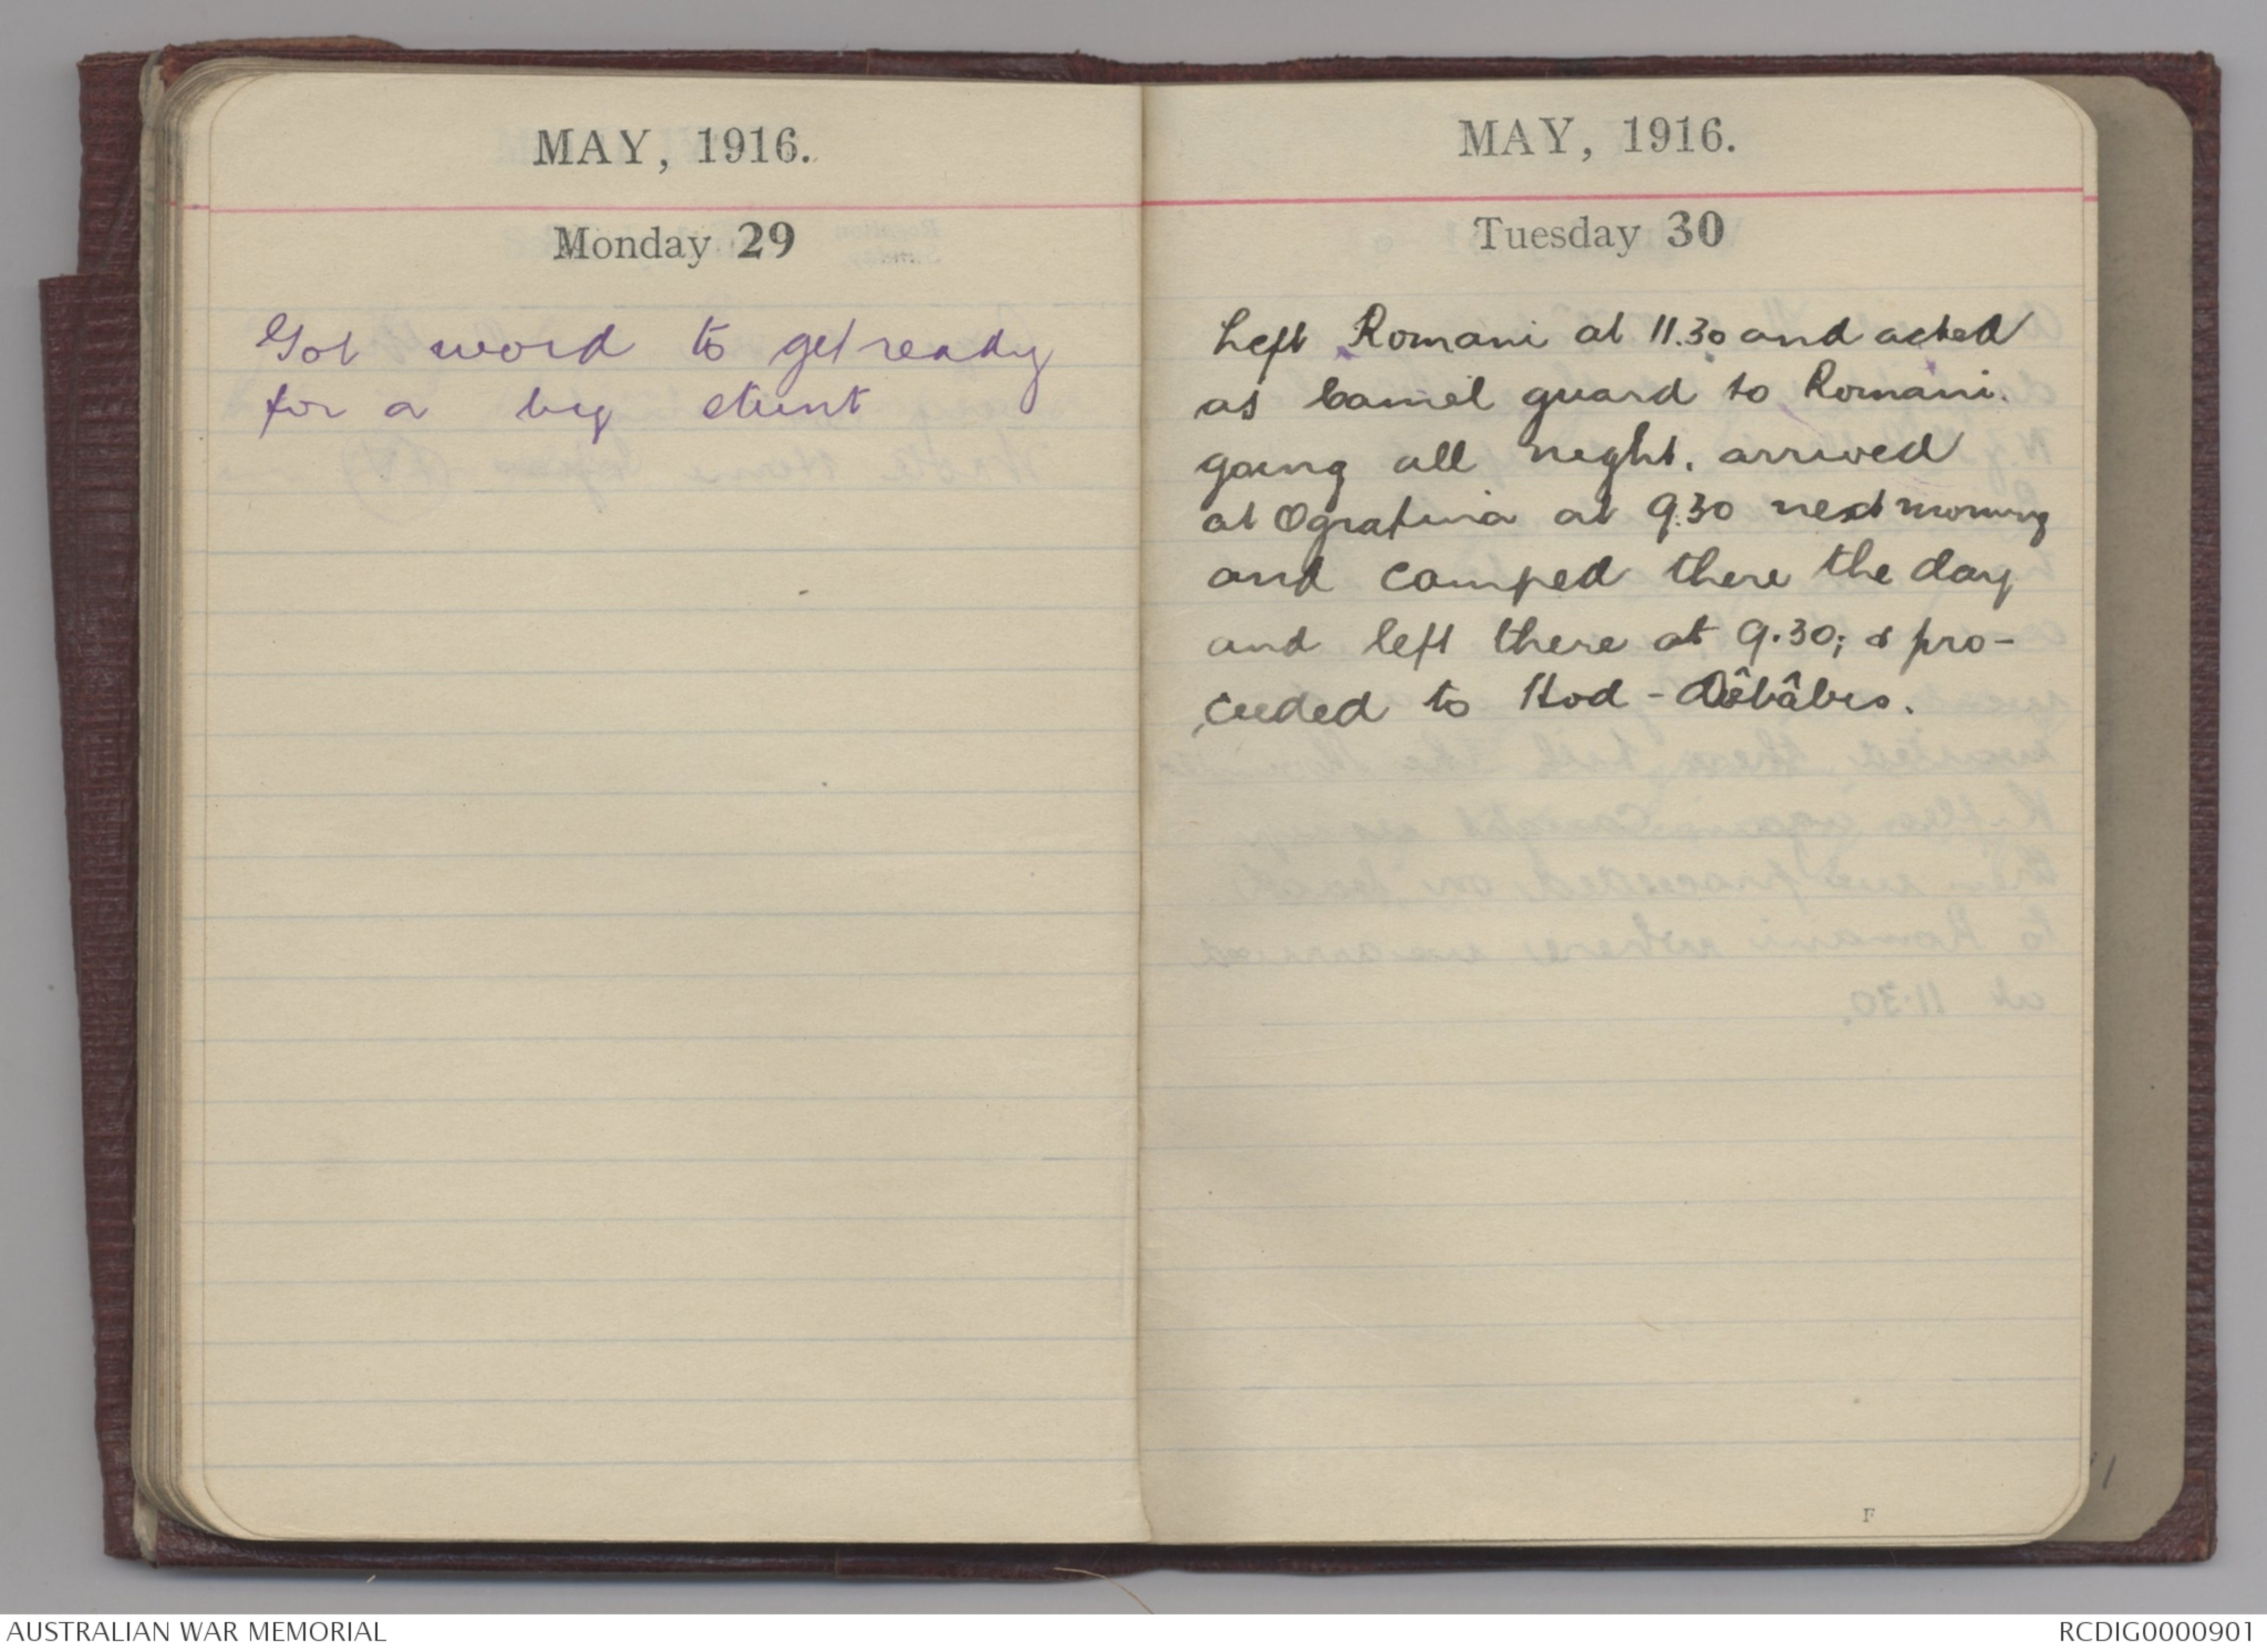 MAY, 1916.
Monday 29
Got word to get ready
for a big stunt
MAY, 1916.
Tuesday 30
Left Romani at 11.30 and acted
as Camel guard to Romani.
going all night. arrived
at Ogratina at 9.30 next morning
and camped there the day
and left there at 9.30; & pro-
ceeded to Hod -
F
AUSTRALIAN WAR MEMORIAL
RCDIG0000901